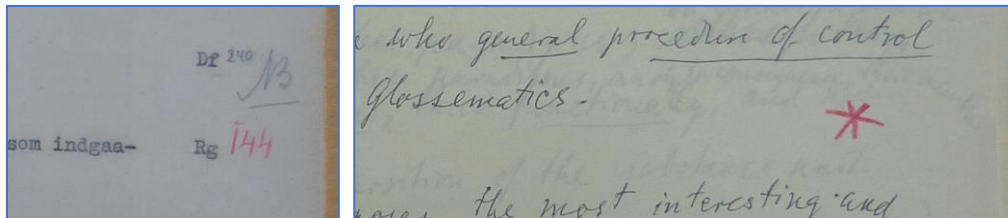 Df 240 NB
som indgaa- Rg I44
who general procedure of control
glossematics.
*
the most interesting and